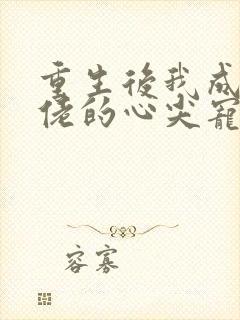 重生後我成
佬的心尖寵
容寡